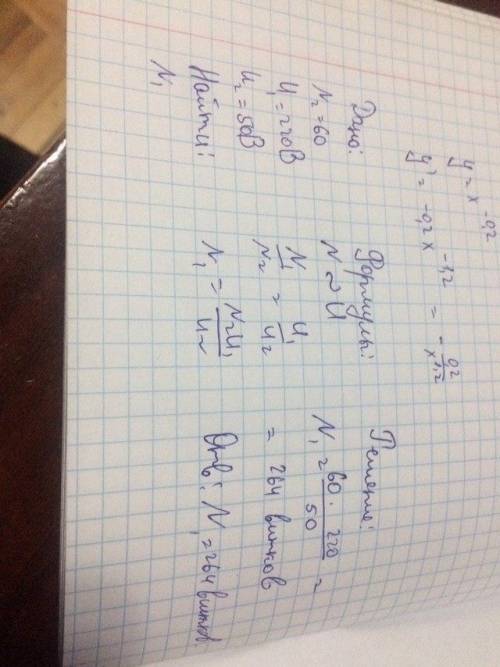 y = x^-0,2
y' = -0,2x^-1,2 = -0,2/x^1,2
Дано:
N₂ = 60
U₁ = 220В
U₂ = 50В
Найти:
N₁
Формулы:
N ~ U
N₁/N₂ = U₁/U₂
N₁ = N₂U₁/U₂
Решение:
N₁ = 60 · 220/50 =
= 264 витков
Отв: N₁ = 264 витков.